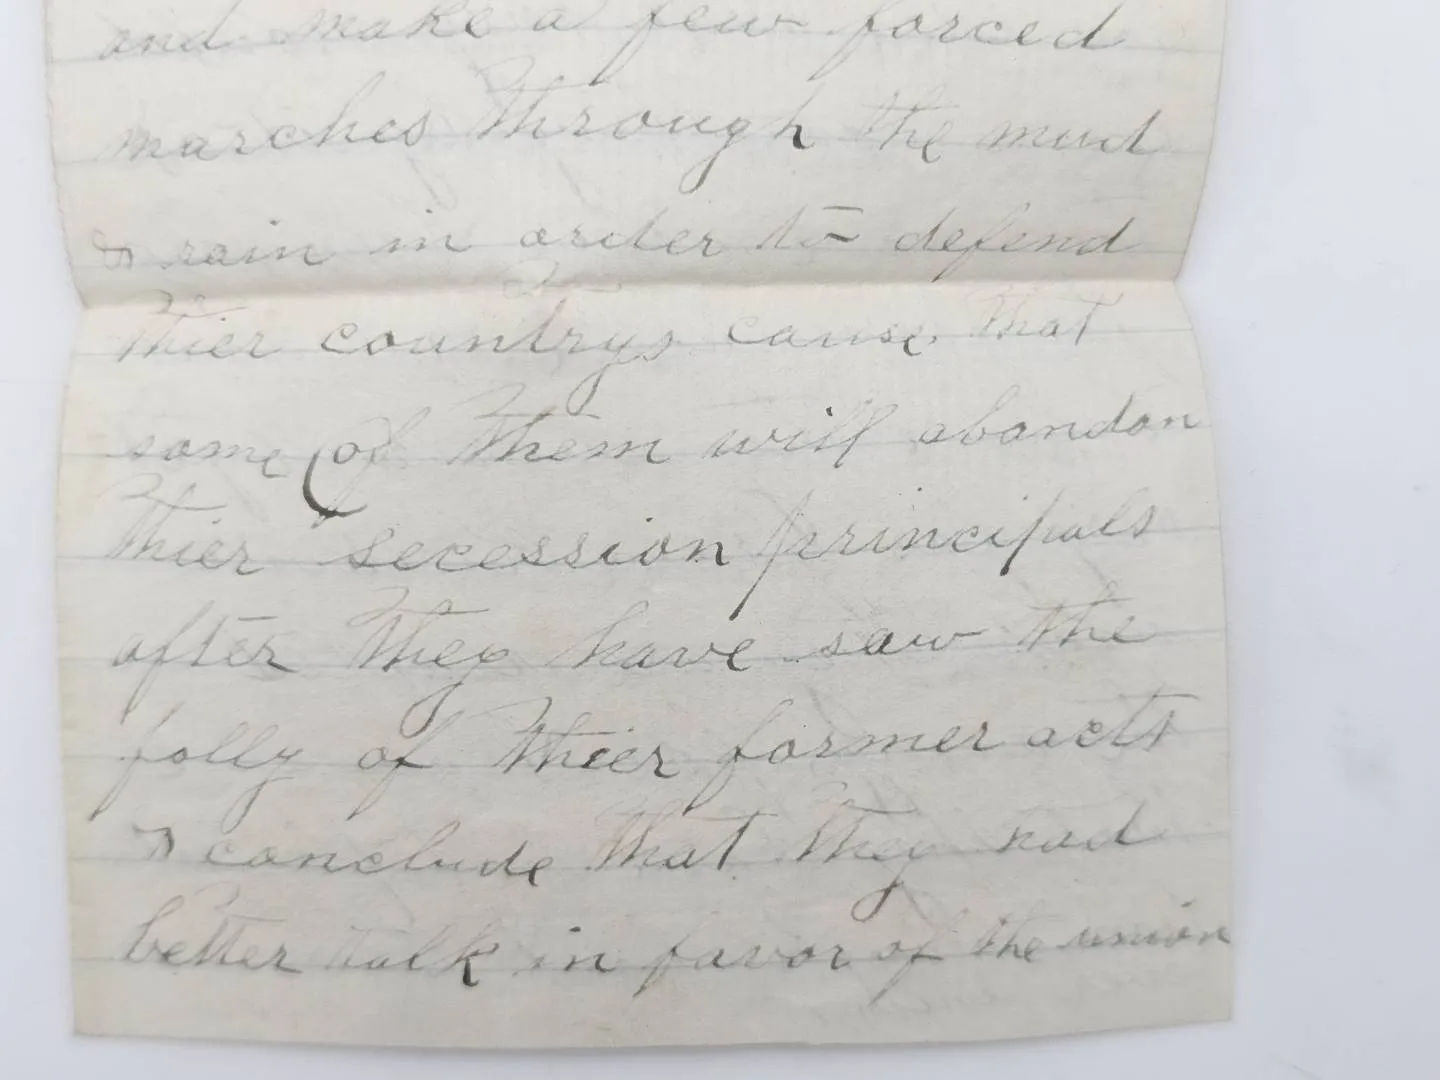 and make a few forced
marches through the mud
& rain in order to defend
thier countrys cause. that
some of them will abandon
thier secession principals
after they have saw the
folly of thier former acts
& conclude that they had
better talk in favor of the union